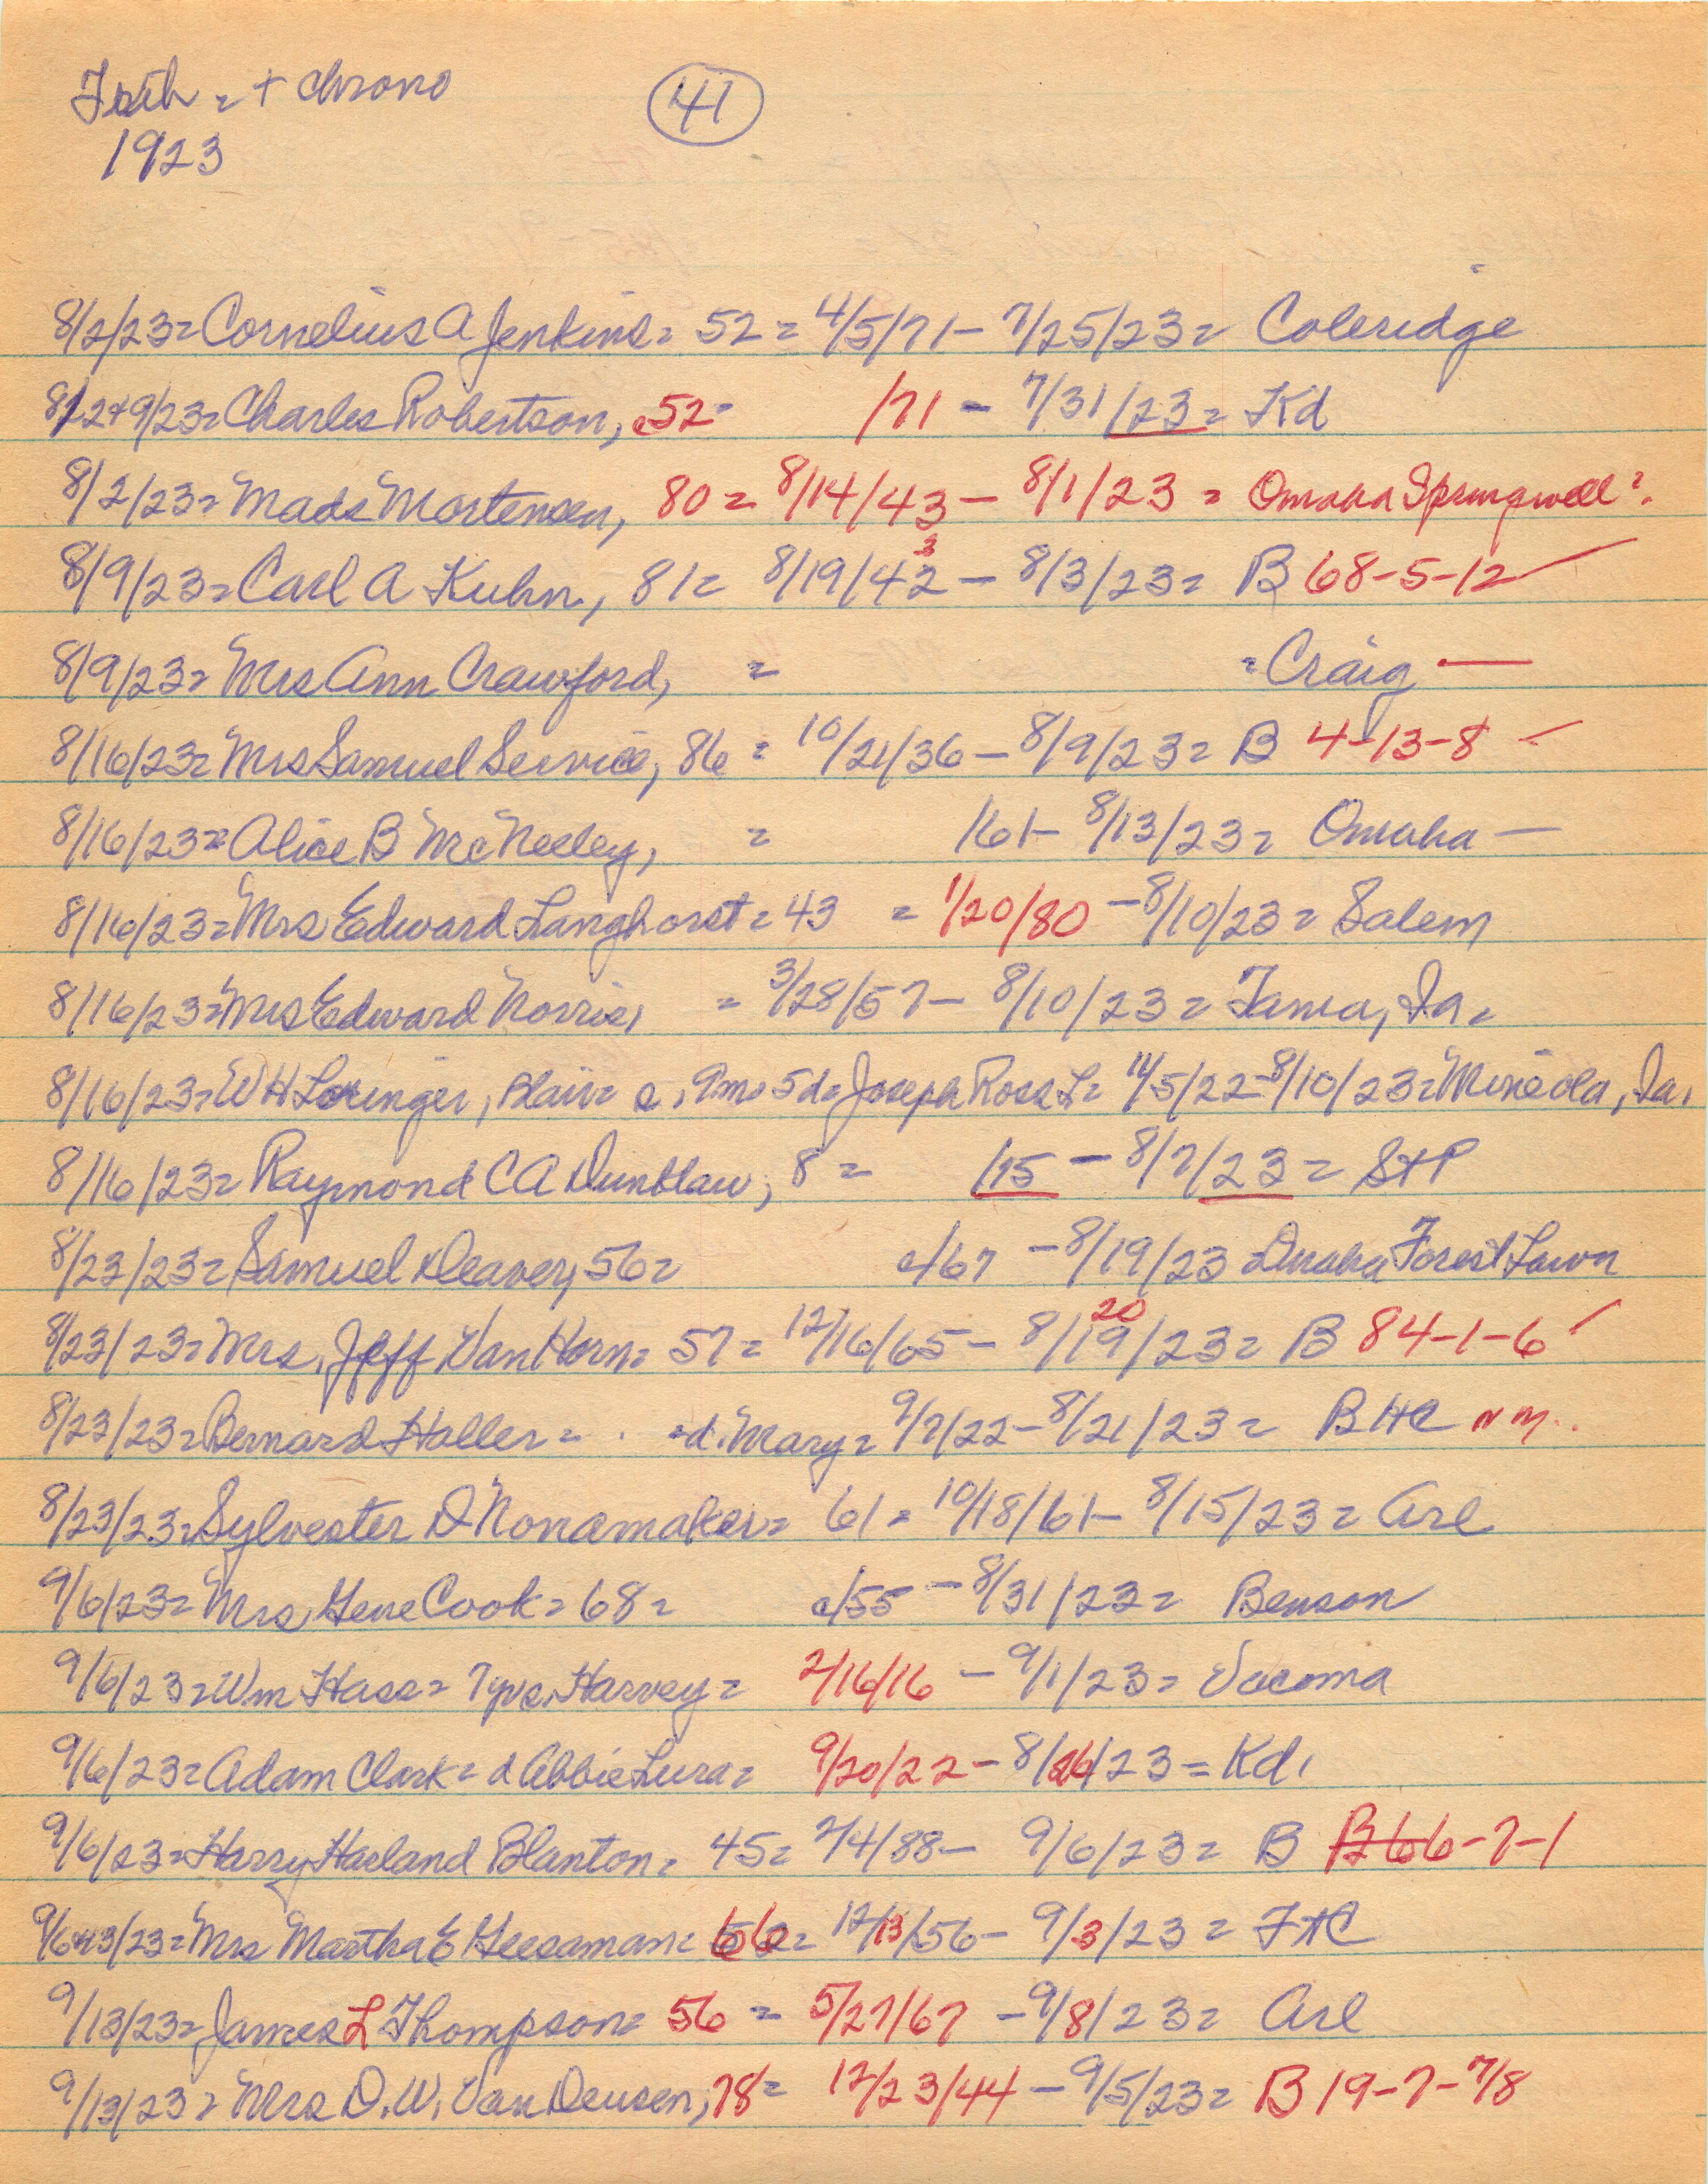 Forth = + chrono
41
1923
8/2/23 = Cornelius A Jenkins = 52 = 4/5/71 - 7/25/23 = Coleridge
8/2+9/23 = Charles Robertson, c52 = /71 - 7/31/23 = Kd
8/2/23 = Mads Mortensen, 80 = 8/14/43 - 8/1/23 = Omaha Springwell?
8/9/23 = Carl A Kuhn, 81 = 8/19/42 3 - 8/3/23 = B 68-5-12 ✓
8/9/23 = Mrs Ann Crawford, = = Craig —
8/16/23 = Mrs Samuel Service, 86 = 10/21/36 - 8/9/23 = B 4-13-8 ✓
8/16/23 = Alice B McNeeley, = /61 - 8/13/23 = Omaha —
8/16/23 = Mrs Edward Langhorst = 43 = 1/20/80 - 8/10/23 = Salem
8/16/23 = Mrs Edward Norris, = 3/28/57 - 8/10/23 = Tama, Ia =
8/16/23 = W H Loringer, Blair = s, 9m 5d = Joseph Ross L = 11/5/22 - 8/10/23 = Mineola, Ia.
8/16/23 = Raymond C A Dunklau, 8 = /15 - 8/7/23 = StP
8/23/23 = Samuel Deaver, 56 = c/67 - 8/19/23 = Omaha Forest Lawn
8/23/23 = Mrs. Jeff Van Horn = 57 = 12/16/65 - 8/19 20/23 = B 84-1-6 ✓
8/23/23 = Bernard Haller = . =d. Mary = 9/7/22 - 8/21/23 = B HC N M.
8/23/23 = Sylvester D Nonamaker = 61 = 10/18/61 - 8/15/23 = Arl
9/6/23 = Mrs, Gene Cook = 68 = c/55 - 8/31/23 = Benson
9/6/23 = Wm Hass = 7yrs. Harvey = 2/16/16 - 9/1/23 = Vacoma
9/6/23 = Adam Clark = d Abbie Lura = 9/20/22 - 8/26/23 = Kd,
9/6/23 = Harry Harland Blanton = 45 = 2/4/88 - 9/6/23 = B B 66-7-1
9/6+13/23 = Mrs Martha E Geesaman = 66 = 12/13/56 - 9/3/23 = FtC
9/13/23 = James L Thompson = 56 = 5/27/67 - 9/8/23 = Arl
9/13/23 = Mrs D. W. Van Deusen, 78 = 12/23/44 - 9/5/23 = B 19-7-7/8